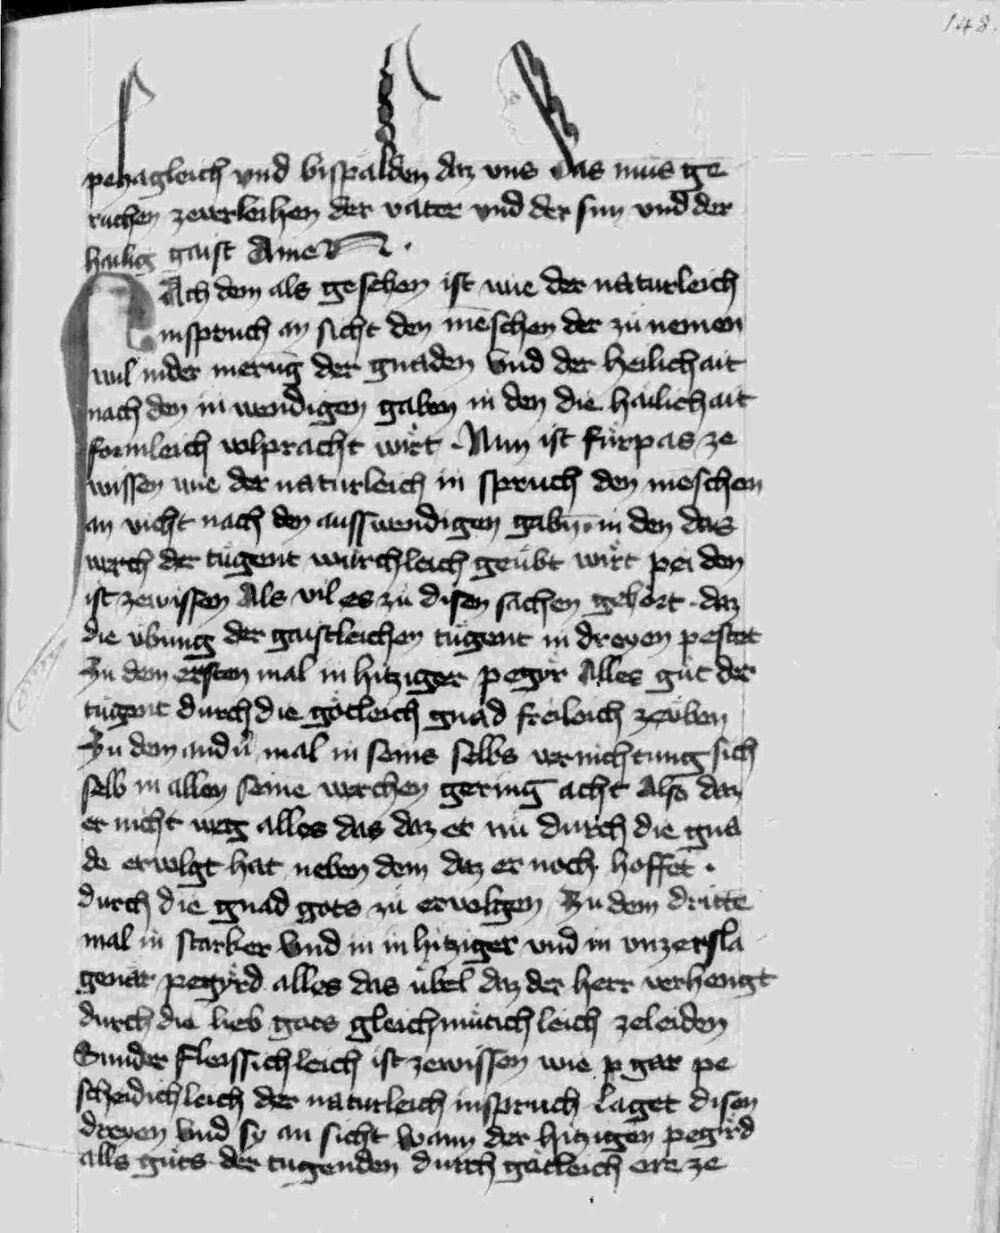 148.
pehagleich vnd bispalden daz vns das mus ge
ruchen zeverleihen der vater vnd der sun vnd der
heilig gaist Amen .
Nach dem als gesehen ist wie der naturleich
inspruch an sicht den mēschen der zů nemen
wil in der merūg der gnaden vnd der heilichait
nach den in wendigen gaben in den die hailichait
formleich volpracht wirt . Nun ist fürpas ze
wissen wie der naturleich in spruch den mēschen
an vicht nach den ausswendigen gabn̄ . in den das
werch der tugent würchleich geübt wirt pei den
ist zewissen Als vil es zů disen sachen gehört . daz
die übung der gaistleichen tugent in dreyen pestet
Zu dem ersten mal in hitziger pegir Alles gůt der
tugent durch die götleich gnad freileich zeüben
Zu dem andn̄ mal in seins selbs vernichtung sich
selb in allen seinē werchen gering acht Also daz
er nicht weg alles das daz er nu durch die gna
de ervolgt hat neben dem daz er noch hoffet .
durch die gnad gots zů ervolgen Zu dem drittē
mal in starker vnd in in hitziger vnd in vnzersla
gener pegird alles das übel daz der herr verhengt
durch die lieb gots gleichmütichleich zeleiden
Sunder fleissichleich ist zewissen wie gar pe
scheidichleich der naturleich inspruch laget disen
dreyen vnd sy an sicht Wann der hitzigen pegird
alls gůts der tugenden durch götleich ere ze